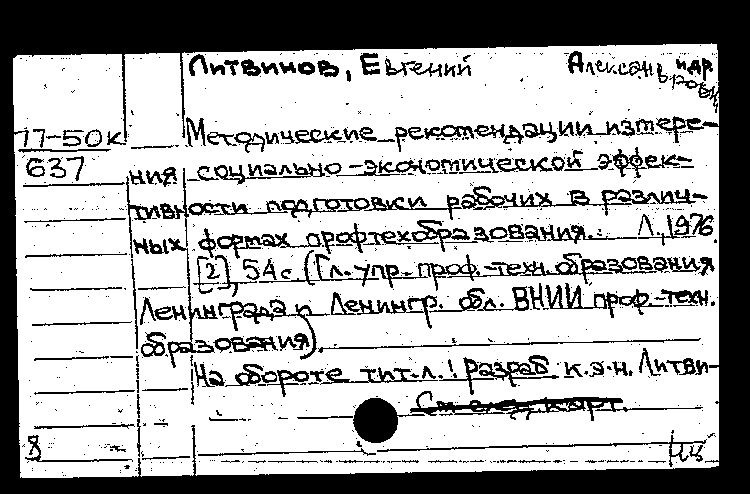 Литвинов, Евгений Александрович и др
77-50к Методические рекомендации измере-
637 ния социально-экономической эффек-
тивности подготовки рабочих в различ-
ных формах профтехобразования. Л, 1976.
[2], 54с (Гл. упр. проф.-техн. образования
Ленинграда и Ленингр. обл. ВНИИ проф.-техн.
образования).
На обороте тит. л.: Разраб к.э.н. Литви-
См след. карт.
8